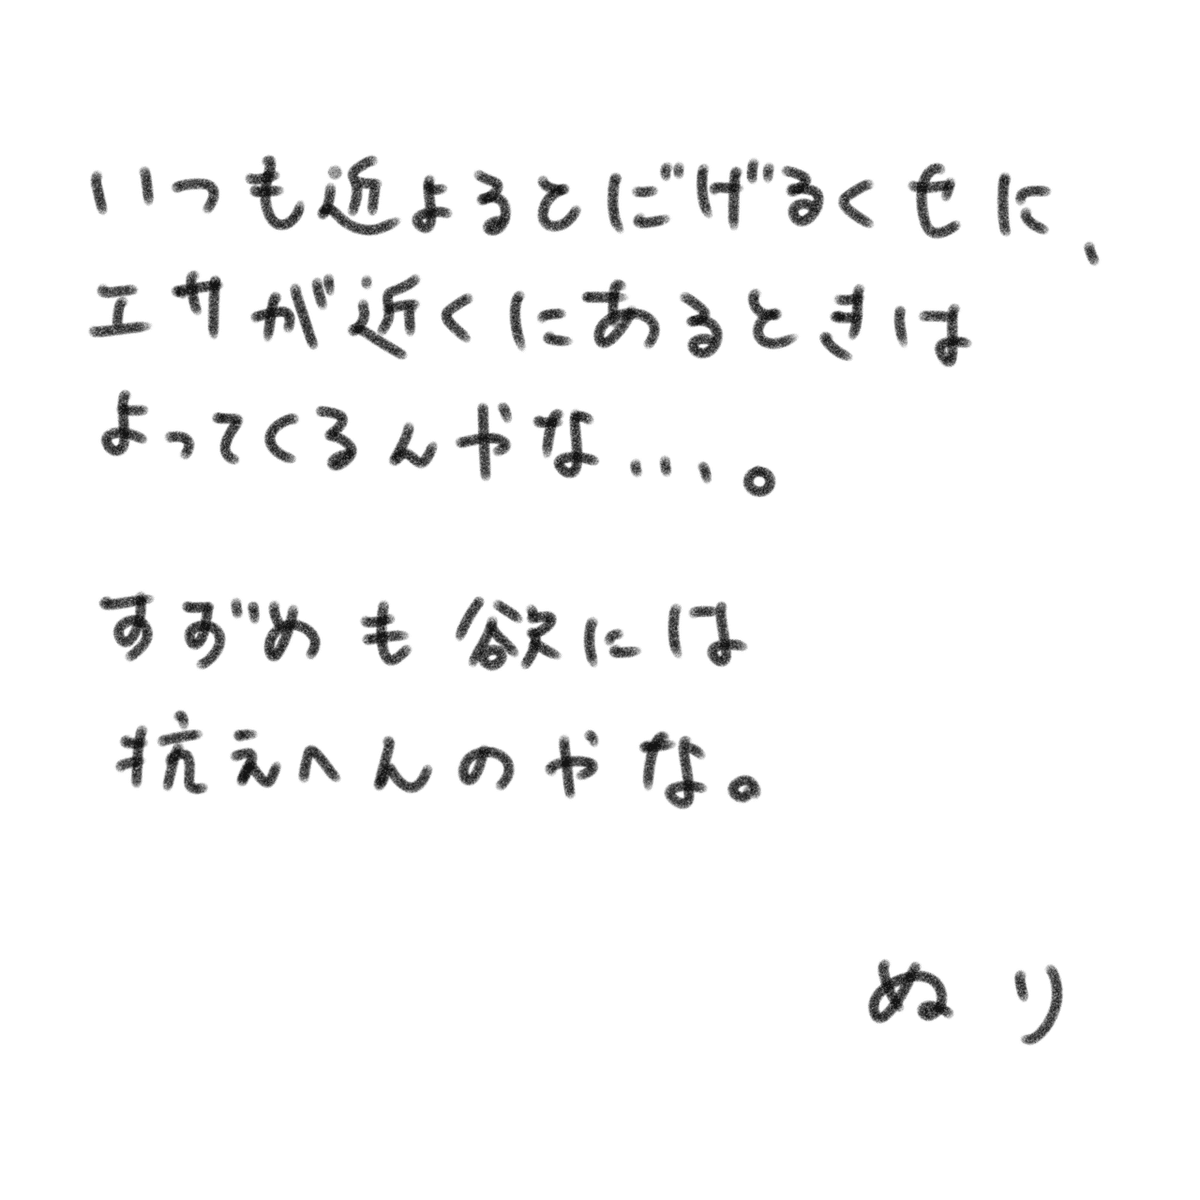 いつも近よるとに゙げるくせに、
エサが近くにあるときは
よってくるんやな...。
すずめも欲には
抗えへんのやな。
ぬり